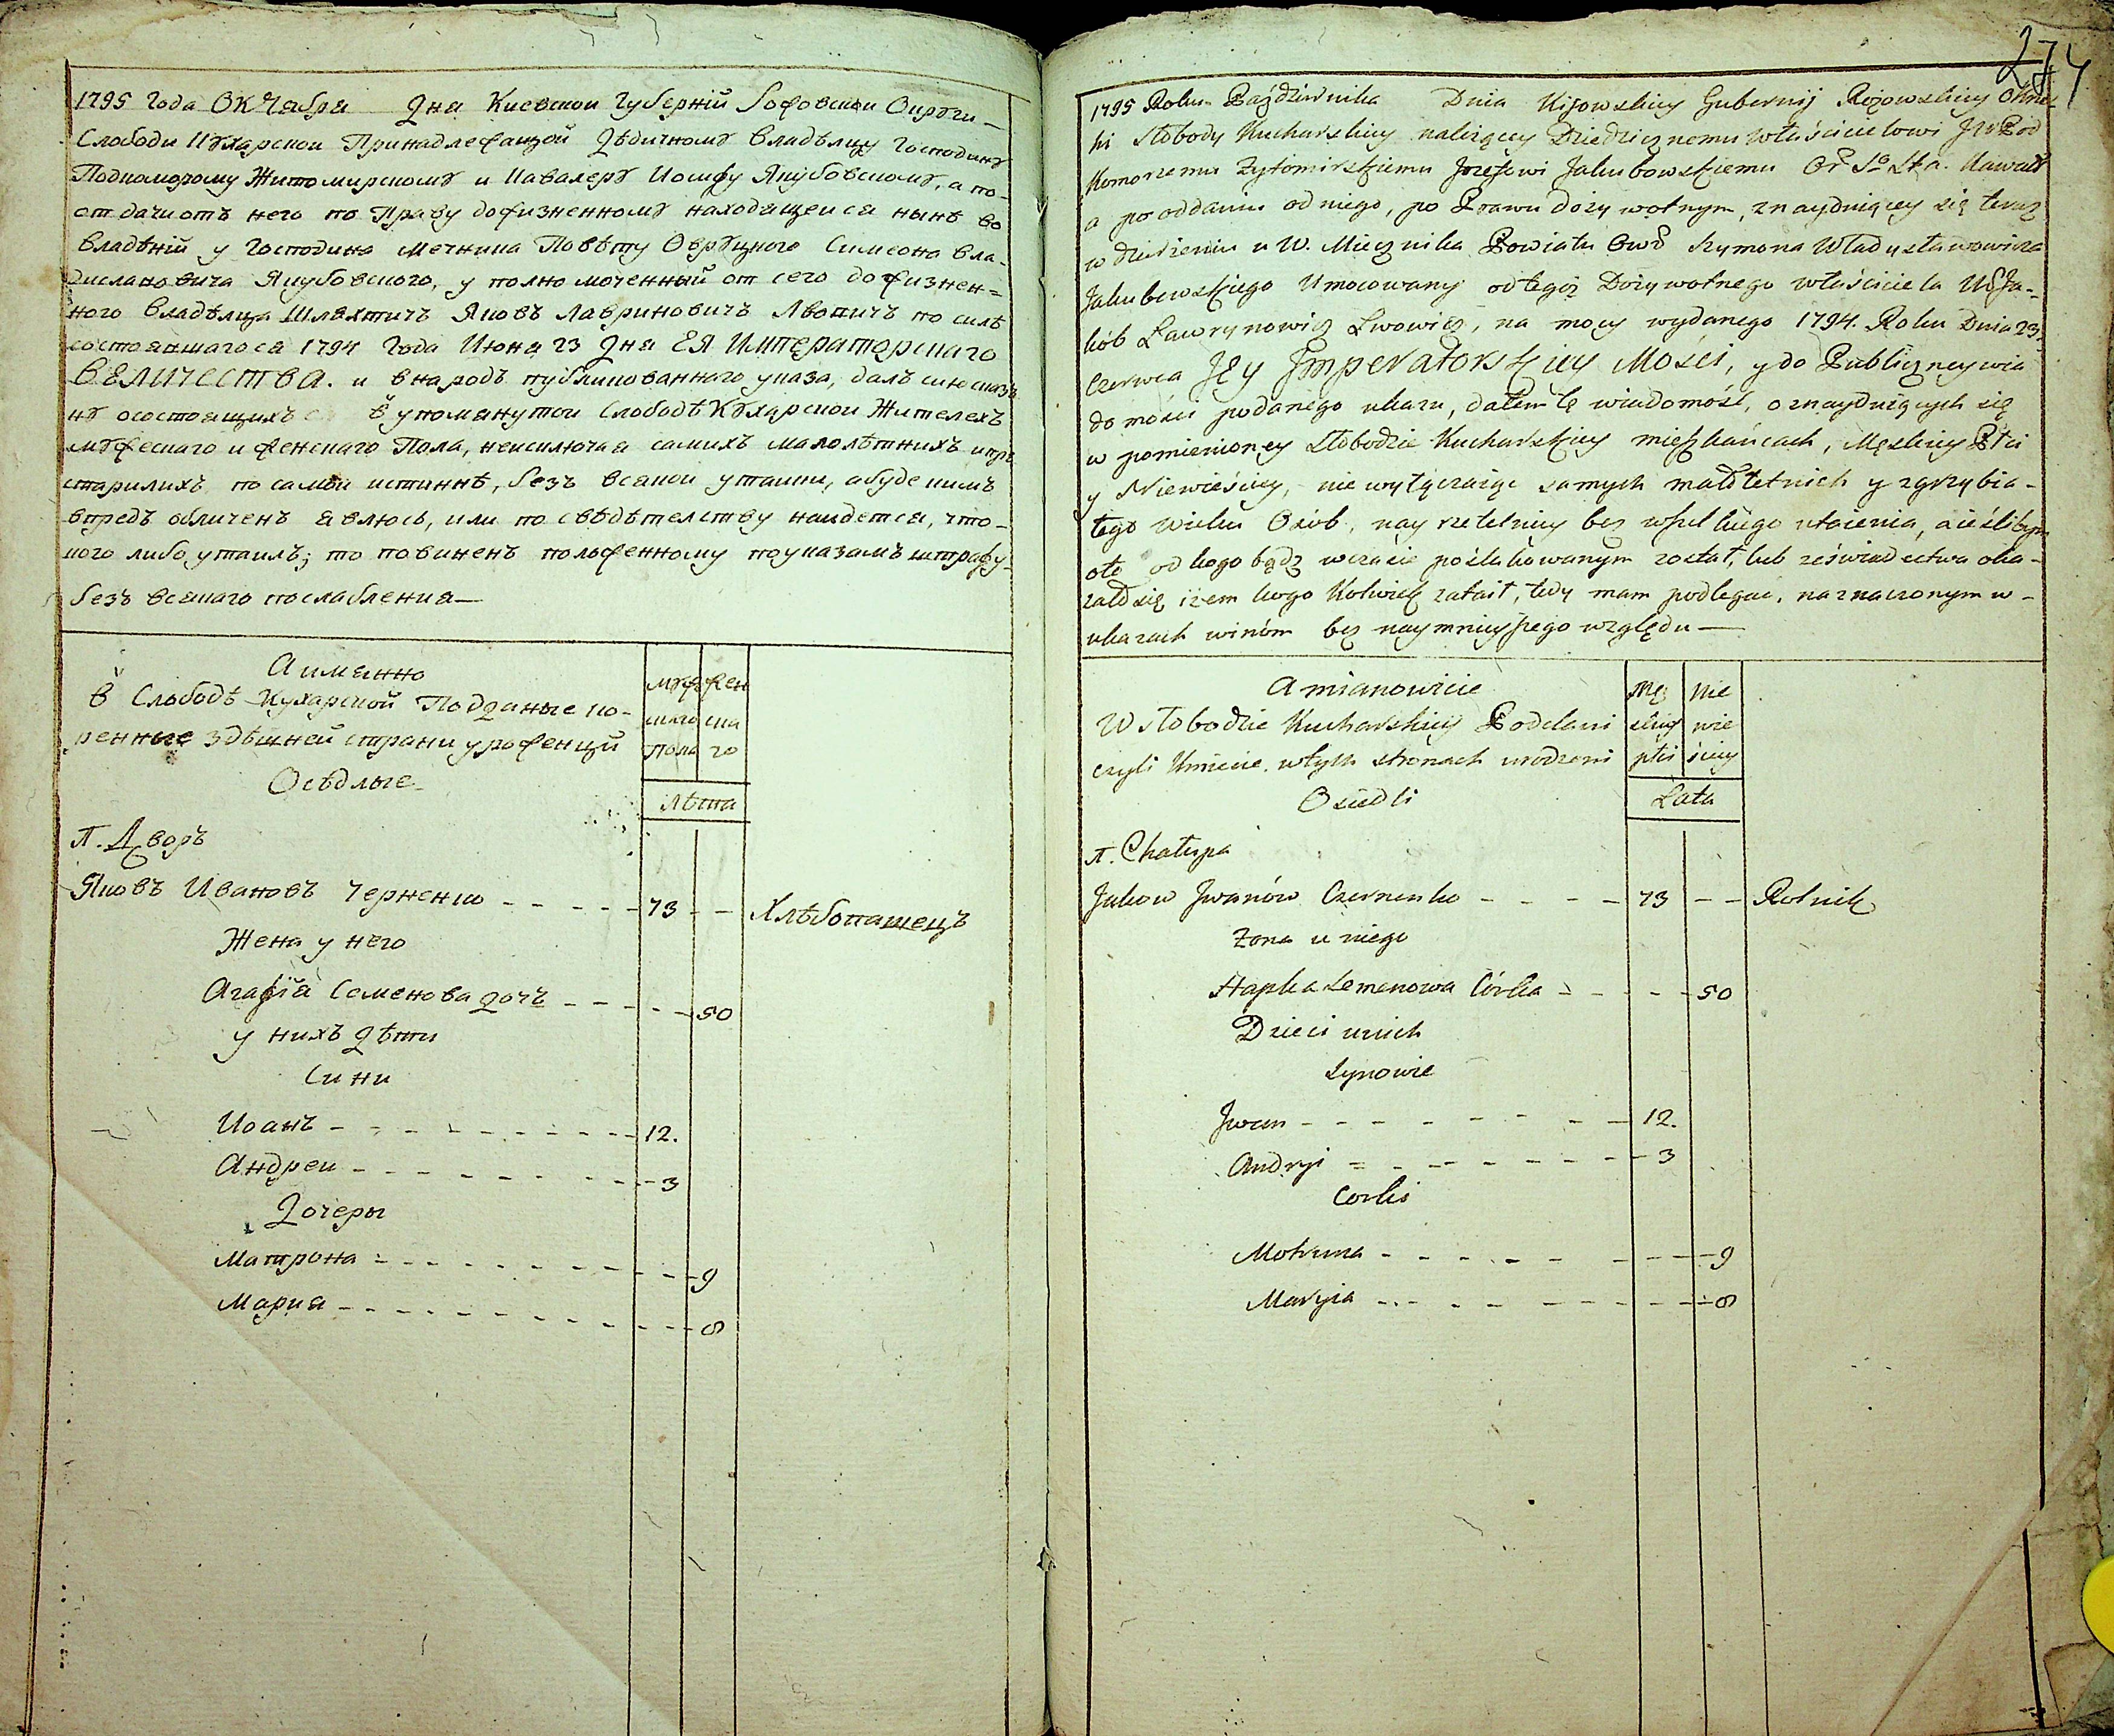 1795 года Октября Дня Киевской Губерній Рожовской Округи
Слободи Кухарской Принадлежащой Дѣдичному владѣлцу Господину
Подкоморому Житомирскому и Кавалеру Иосифу Якубовскому, а по
отдачи отъ него по Праву дожизненному находящейся нынѣ во
владѣній у Господина Мечника Повѣту Овруцкого Симеона Вла-
диславовича Якубовского, уполномоченный от сего дожизнен=
ного владѣлца Шляхтичъ Яковъ Лавриновичъ Лвовичъ по силѣ
состоявшагося 1794 года Июня 23 Дня ЕЯ Императорскаго
ВЕЛИЧЕСТВА. и внародъ публикованнаго указа, далъ сию сказ
ку осостоящихъ в упоманутой Слободѣ Кухарской Жителехъ
мужескаго и женскаго Пола, неисключая самихъ малолѣтнихъ и пре
старилихъ по самой истиннѣ, безъ всякой утайки, абуде кимъ
впредъ обличенъ явлюсь, или по свѣдѣтелству найдется, что-
кого либо утаилъ; то повиненъ положенному поуказамъ штрафу
безъ всякаго послабления—
А имянно
в Слободѣ Кухарской Подданые ко-
ренные здѣшней страни урожен цы
Осѣдлые
муж жен
скаго ска
Пола го
лѣта
1. Дворъ
Яковъ Ивановъ Черненко - - - - - 73 - - Хлѣбопашецъ
Жена у него
Агафія Семенова дочь - - - - 50
у нихъ дѣти
Сини
Иоанъ - - - - - - - - - 12.
Андрей - - - - - - - - - 3
Дочеры
Матрона - - - - - - - - - 9
Мария - - - - - - - - - 8
274
1795 Roku Października Dnia Kijowskiey Gubernij Rożowskiey Okrę
ki Słobody Kucharskiey należącey Dziedzicznemu właścicielowi JW Pod
Komorzemu Żytomirskiemu Jozefowi Jakubowskiemu Or S Sta. Kawale
a po oddaniu od niego, po Prawu dożywotnym, znayduiącey się teraz
w dzierżeniu u W. Miecznika Powiatu Owr Szymona Władysławowicza
Jakubowskiego Umocowany od tegoż Dożywotnego właściciela Ja-
kób Ławrynowicz Lwowicz, na mocy wydanego 1794. Roku Dnia 23.
Czerwca JEy Imperatorskiey Mości, y do Publiczney wia
domości podanego ukazu, dałem tę wiadomość, o znayduiących się
w pomienioney Słobodzie Kucharskiey mieszkańcach, Męskiey Płci
y Niewieściey, nie wyłączaiąc samych małoletnich y zgrzybia-
łego wieku Osób, nay rzetelniey bez wszelkiego utaienia, a ieśli bym
oto od kogo bądz w czasie poszlakowanym został, lub ze świadectwa oka-
zało się iżem kogo kolwiek zataił, tedy mam podlegać, naznaczonym w-
ukazach winóm bez naymnieyszego względu—
A mianowicie
W Słobodzie Kucharskiey Poddani
czyli Kmiecie w tych stronach urodzeni
Osiedli
Mę Nie
skiey wie
płci ściey
Lata
1. Chałupa
Jakow Iwanów Czernenko - - - - 73 - - Rolnik
Zona u niego
Hapka Semenowa Córka - - - - 50
Dzieci u nich
Synowie
Iwan - - - - - - - 12.
Andryi - - - - - - - 3
Corki
Motruna - - - - - - - - 9
Maryia - - - - - - - - 8